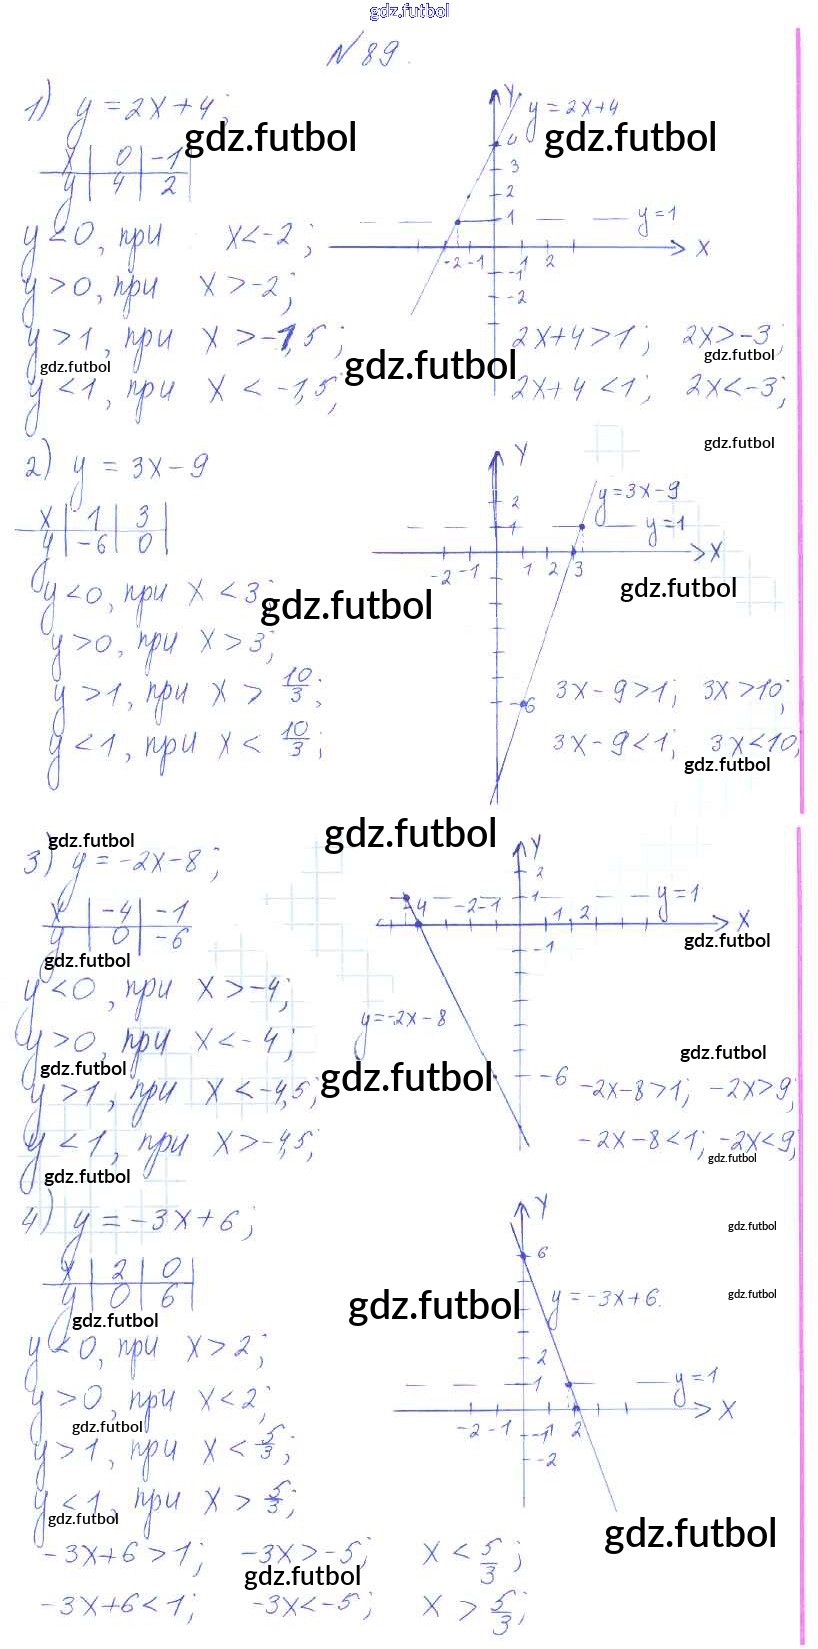 gdz.futbol
N 89.
1) y = 2x+4;
x | 0 | -1
y | 4 | 2
y<0, при x<-2;
y>0, при x>-2;
y>1, при x>-1,5;
y<1, при x<-1,5;
y
y=2x+4
4
3
2
1
y=1
-2 -1 1 2
x
-1
-2
2x+4>1; 2x>-3;
2x+4<1; 2x<-3;
gdz.futbol
gdz.futbol
gdz.futbol
gdz.futbol
gdz.futbol
gdz.futbol
2) y = 3x-9
x | 1 | 3
y | -6 | 0
y<0, при x<3;
y>0, при x>3;
y>1, при x> 10/3;
y<1, при x< 10/3;
y
2
y=3x-9
1
y=1
-2 -1 1 2 3
x
-6
3x-9>1; 3x>10;
3x-9<1; 3x<10;
gdz.futbol
gdz.futbol
gdz.futbol
gdz.futbol
gdz.futbol
3) y = -2x-8;
x | -4 | -1
y | 0 | -6
y<0, при x>-4;
y>0, при x<-4;
y>1, при x<-4,5;
y<1, при x>-4,5;
y
2
1
y=1
-4 -2 -1 1 2
x
-1
y=-2x-8
-6
-2x-8>1; -2x>9;
-2x-8<1; -2x<9;
gdz.futbol
gdz.futbol
gdz.futbol
gdz.futbol
gdz.futbol
gdz.futbol
gdz.futbol
4) y = -3x+6;
x | 2 | 0
y | 0 | 6
y<0, при x>2;
y>0, при x<2;
y>1, при x< 5/3;
y<1, при x> 5/3;
y
6
y=-3x+6.
2
1
y=1
-2 -1 2
x
-1
-2
gdz.futbol
gdz.futbol
gdz.futbol
gdz.futbol
gdz.futbol
gdz.futbol
gdz.futbol
-3x+6>1; -3x>-5; x< 5/3;
gdz.futbol
-3x+6<1; -3x<-5; x> 5/3;